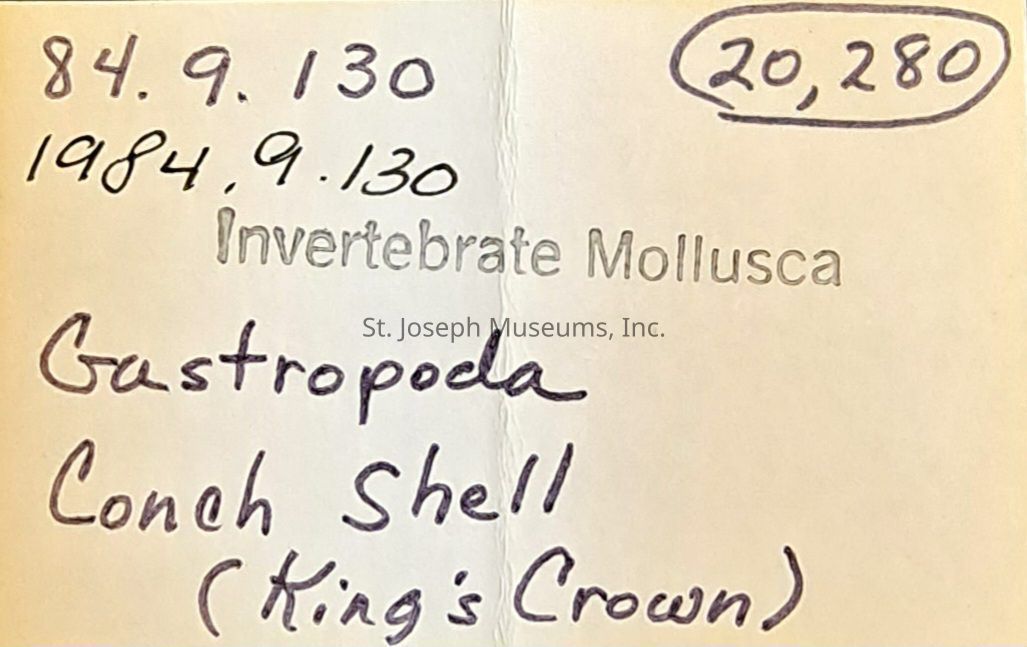 84.9.130 20,280
1984.9.130
Invertebrate Mollusca
St. Joseph Museums, Inc.
Gastropoda
Conch Shell
(King's Crown)